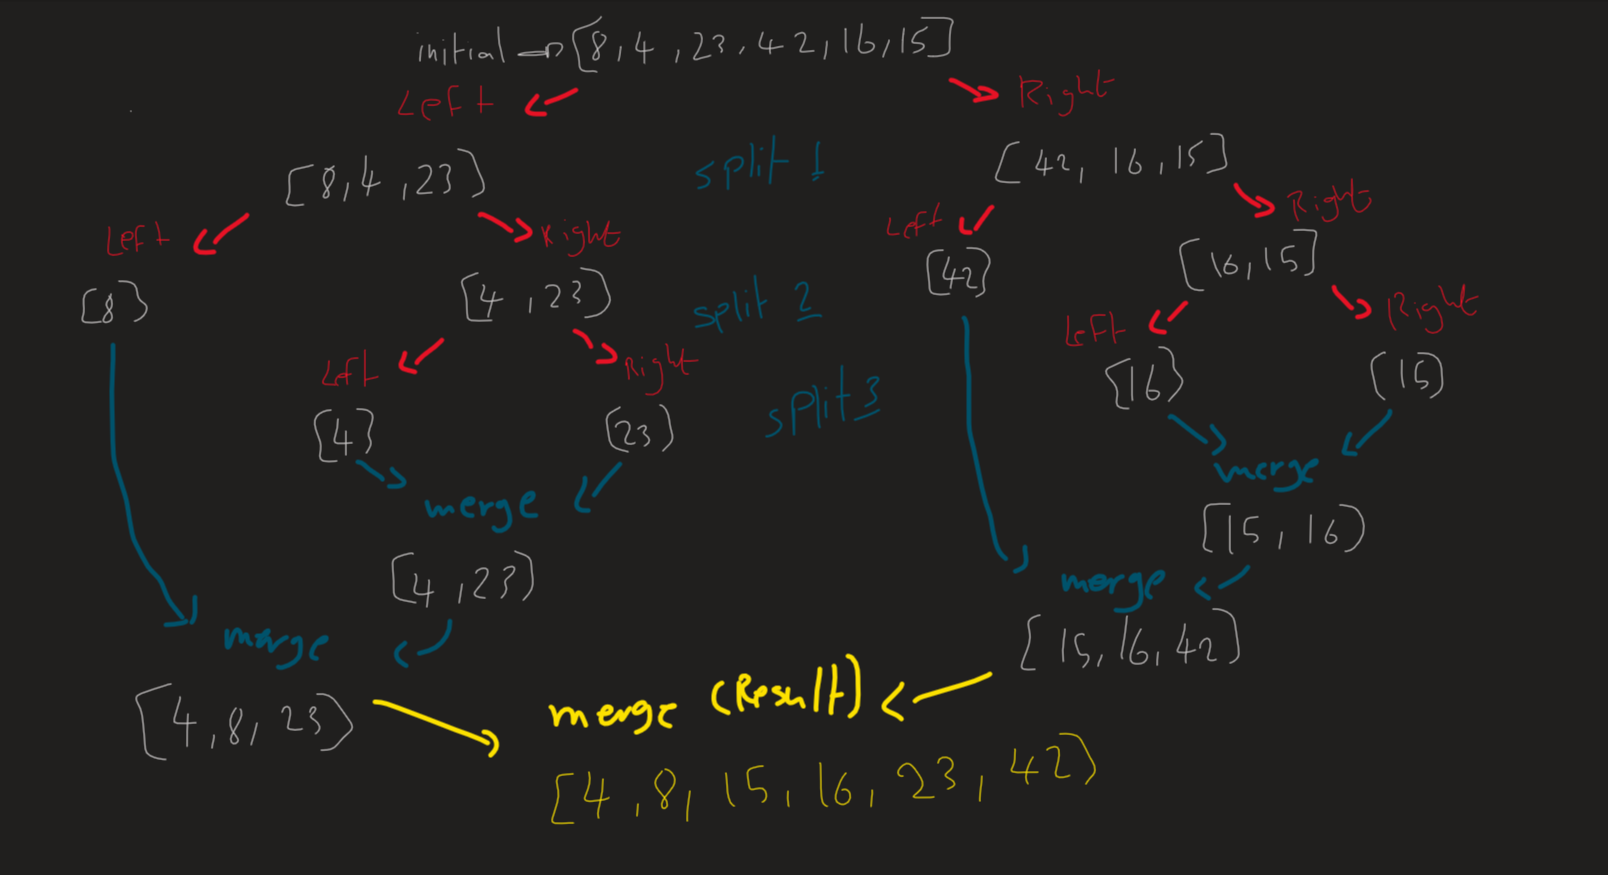 initial → [8,4,23,42,16,15]
Left
Right
split 1
[8,4,23]
[42, 16,15]
Left
Right
Left
Right
[8]
[4,23]
split 2
[42]
[16,15]
Left
Right
Left
Right
[4]
[23]
split 3
[16]
[15]
merge
merge
[4,23]
[15, 16]
merge
merge
[4,8,23]
[15,16,42]
merge (Result)
[4,8,15,16,23,42]